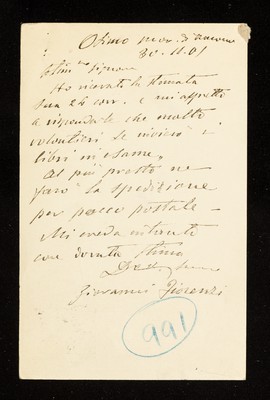 Osimo prov. d'Ancona
30. 11. 01
Ho ricevuto la stimata
sua 26 corr. e mi affretto
a risponderle che molto
volentieri le invierò i
libri in esame.
Al più presto ne
farò la spedizione
per pacco postale -
Mi creda intanto
con dovuta stima
Giovanni Fiorenzi
991